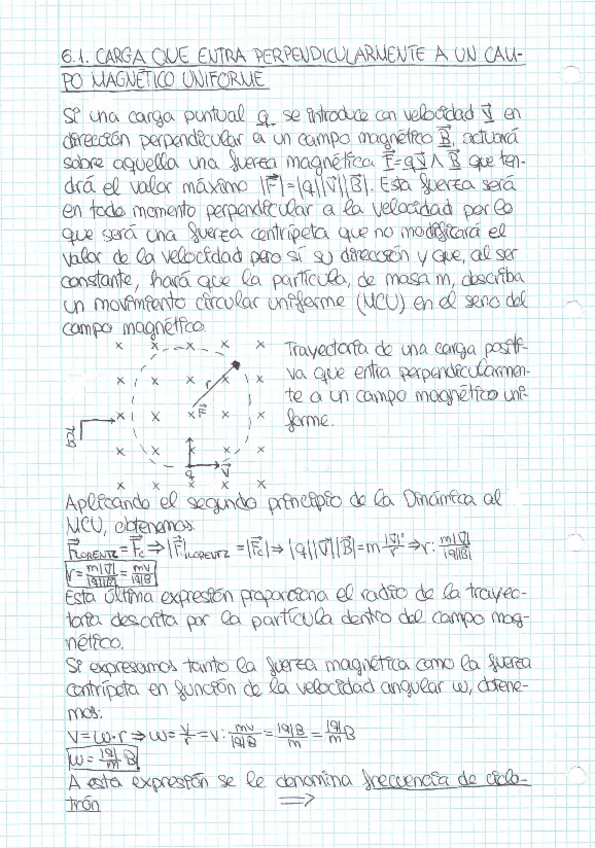 6.1. CARGA QUE ENTRA PERPENDICULARMENTE A UN CAM-
PO MAGNÉTICO UNIFORME
Si una carga puntual q se introduce con velocidad V⃗ en
dirección perpendicular a un campo magnético B⃗, actuará
sobre aquella una fuerza magnética F⃗=qV⃗ ∧ B⃗ que ten-
drá el valor máximo |F⃗|=|q||V⃗||B⃗|. Esta fuerza será
en todo momento perpendicular a la velocidad por lo
que será una fuerza centrípeta que no modificará el
valor de la velocidad pero sí su dirección y que, al ser
constante, hará que la partícula, de masa m, describa
un movimiento circular uniforme (MCU) en el seno del
campo magnético.
Trayectoria de una carga positi-
va que entra perpendicularmen-
te a un campo magnético uni-
forme.
r
F⃗
B⃗
q
V⃗
Aplicando el segundo principio de la Dinámica al
MCU, obtenemos
F⃗LORENTZ = F⃗c ⇒ |F⃗|LORENTZ = |F⃗c| ⇒ |q||V⃗||B⃗| = m |V⃗|²/r ⇒ r: m|V⃗|/|q||B⃗|
r = m|V⃗|/|q||B⃗| = mv/|q|B
Esta última expresión proporciona el radio de la trayec-
toria descrita por la partícula dentro del campo mag-
nético.
Si expresamos tanto la fuerza magnética como la fuerza
centrípeta en función de la velocidad angular ω, obtene-
mos:
V = ω·r ⇒ ω = V/r = v: mv/|q|B = |q|B/m = |q|/m B
ω = |q|/m B
A esta expresión se le denomina frecuencia de ciclo-
trón
⇒